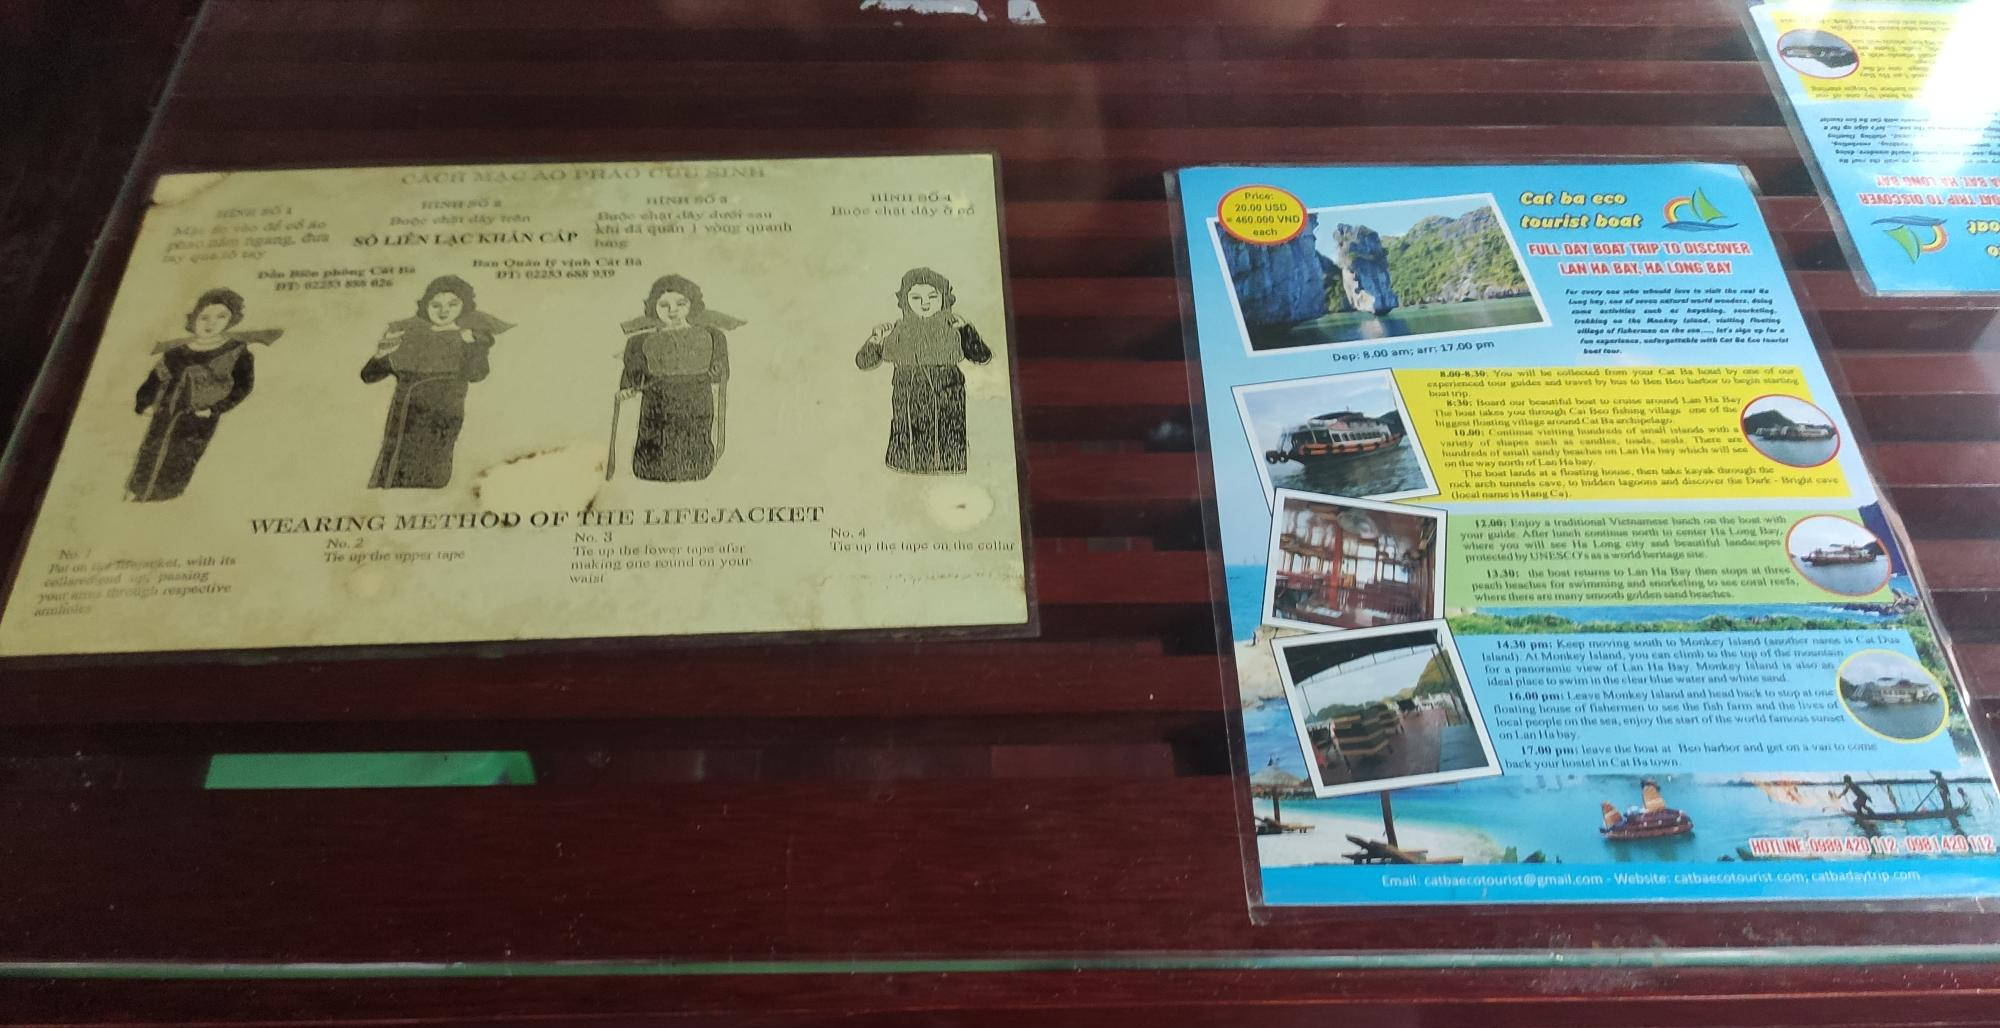 CÁCH MẶC ÁO PHAO CỨU SINH
HÌNH SỐ 1
Mặc áo vào để cổ áo
phao nằm ngang, đưa
tay qua lỗ tay
HÌNH SỐ 2
Buộc chặt dây trên
HÌNH SỐ 3
Buộc chặt dây dưới sau
khi đã quấn 1 vòng quanh
lưng
HÌNH SỐ 4
Buộc chặt dây ở cổ
SỐ LIÊN LẠC KHẨN CẤP
Đồn Biên phòng Cát Bà
ĐT: 02253 888 026
Ban Quản lý vịnh Cát Bà
ĐT: 02253 688 939
WEARING METHOD OF THE LIFEJACKET
No. 1
Put on the lifejacket, with its
collared end up, passing
your arms through respective
armholes
No. 2
Tie up the upper tape
No. 3
Tie up the lower tape afer
making one round on your
waist
No. 4
Tie up the tape on the collar
Price:
20.00 USD
= 460.000 VND
each
Cat ba eco
tourist boat
FULL DAY BOAT TRIP TO DISCOVER
LAN HA BAY, HA LONG BAY
For every one who whould love to visit the real Ha
Long bay, one of seven natural world wonders, doing
some activities such as kayaking, snorkeling,
trekking on the Monkey Island, visiting floating
village of fishermen on the sea...., let's sign up for a
fun experience, unforgettable with Cat Ba Eco tourist
boat tour.
Dep: 8.00 am; arr: 17.00 pm
8.00-8.30: You will be collected from your Cat Ba hotel by one of our
experienced tour guides and travel by bus to Ben Beo harbor to begin starting
boat trip.
8:30: Board our beautiful boat to cruise around Lan Ha Bay
The boat takes you through Cai Beo fishing village one of the
biggest floating village around Cat Ba archipelago.
10.00: Continue visiting hundreds of small islands with a
variety of shapes such as candles, toads, seals. There are
hundreds of small sandy beaches on Lan Ha bay which will see
on the way north of Lan Ha bay.
The boat lands at a floating house, then take kayak through the
rock arch tunnels cave, to hidden lagoons and discover the Dark - Bright cave
(local name is Hang Ca).
12.00: Enjoy a traditional Vietnamese lunch on the boat with
your guide. After lunch continue north to center Ha Long Bay,
where you will see Ha Long city and beautiful landscapes
protected by UNESCO's as a world heritage site.
13.30: the boat returns to Lan Ha Bay then stops at three
peach beaches for swimming and snorkeling to see coral reefs,
where there are many smooth golden sand beaches.
14.30 pm: Keep moving south to Monkey Island (another name is Cat Dua
Island). At Monkey Island, you can climb to the top of the mountain
for a panoramic view of Lan Ha Bay. Monkey Island is also an
ideal place to swim in the clear blue water and white sand.
16.00 pm: Leave Monkey Island and head back to stop at one
floating house of fishermen to see the fish farm and the lives of
local people on the sea, enjoy the start of the world famous sunset
on Lan Ha bay.
17.00 pm: leave the boat at Beo harbor and get on a van to come
back your hostel in Cat Ba town.
HOTLINE: 0989 420 112 - 0981 420 112
Email: catbaecotourist@gmail.com - Website: catbaecotourist.com; catbadaytrip.com